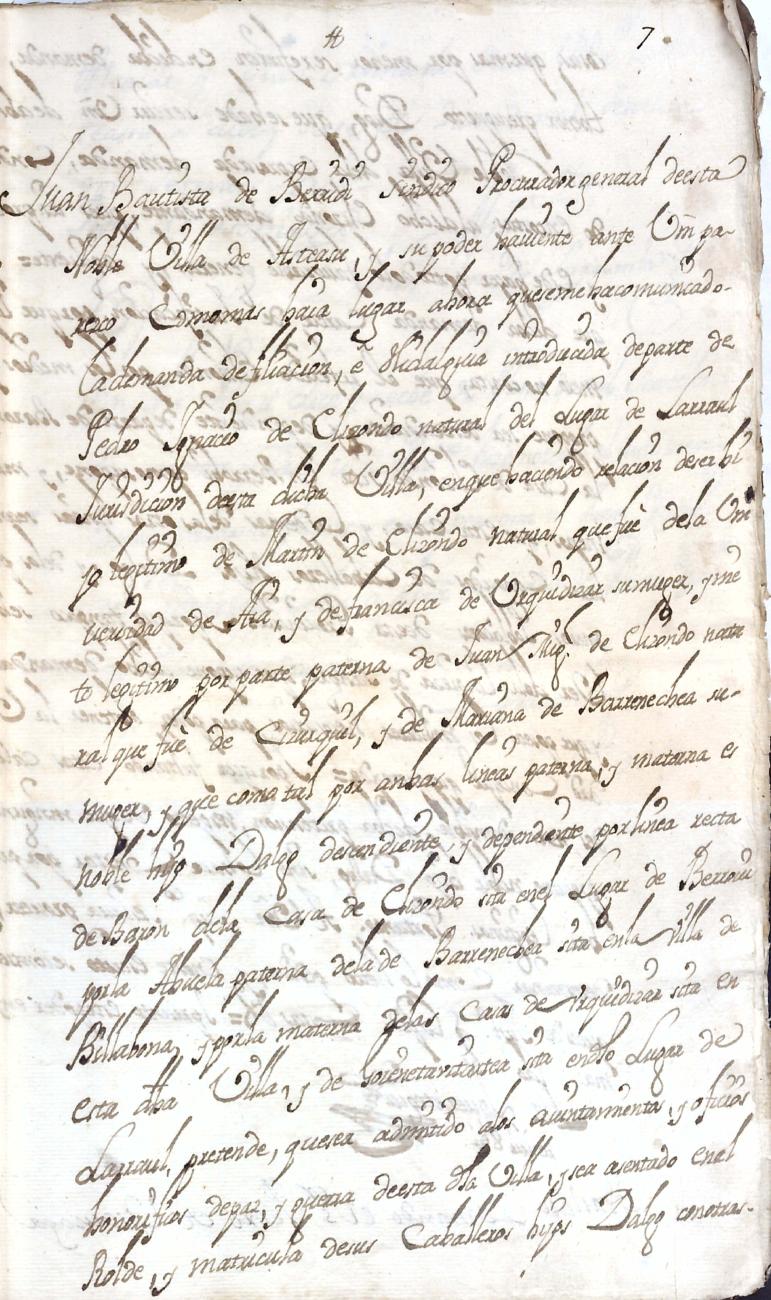 7
Juan Bautista de Berridi sindico Procurador general deesta
Noble Villa de Asteasu, y su poder haviente ante Vm pa-
rezco Comomas haia lugar ahora quesemehacomunicado-
La demanda de filiacion, è Hidalguia introducida departe de
Pedro Ignacio de Elizondo natural del Lugar de Larraul
Jurisdicion desta dicha Villa, enque haciendo relacion deser hi
jo legitimo de Martin de Elizondo natural que fuè dela Vni
versidad de Aia, y defrancisca de Urquidizar sumuger, y nie
to legitimo por parte paterna de Juan Mig.l de Elizondo natu
ral que fuè de Cizurquil, y de Mariana de Barrenechea su-
muger, y que como tal por anbas lineas paterna, y materna es
noble hijo Dalgo descendiente, y dependiente por linea recta
de Baron dela Casa de Elizondo sita enel Lugar de Berrovi
porla Abuela paterna dela de Barrenechea sita enla villa de
Billabona, y porla materna delas Casas de Urquidizar sita en
esta dha Villa, y de sita endho Lugar de
Larraul, pretende, quesea admitido alos aiuntamientos, y oficios
honorificos depaz, y guerra deesta dha Villa, y sea asentado enel
Rolde, y matricula desus Caballeros hijos Dalgo conotras-